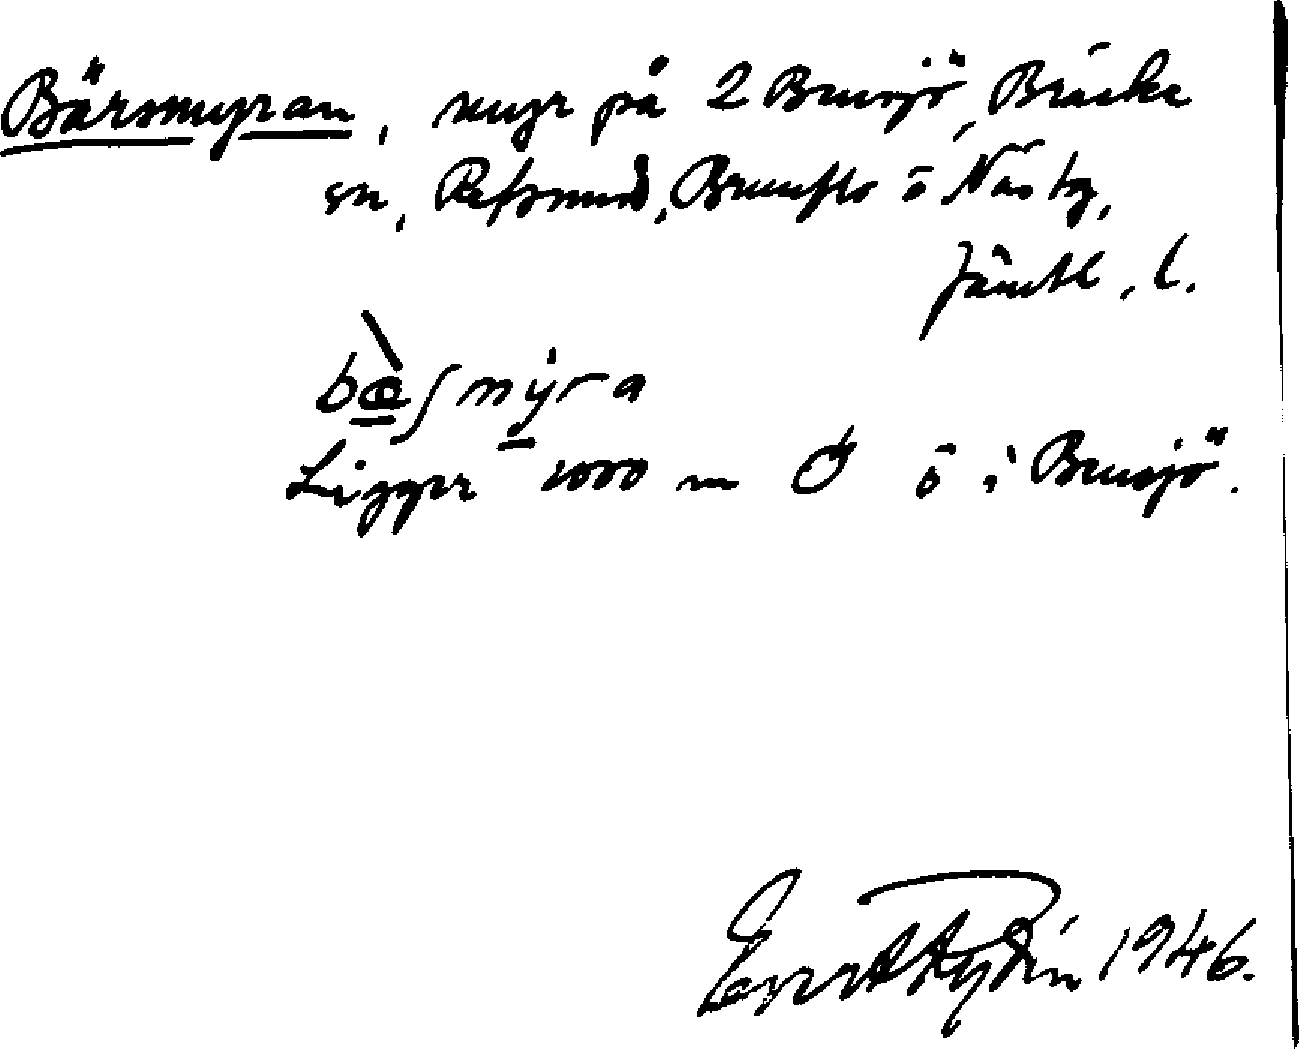 Bärsmyran, myr på 2 Bensjö, Bräcke
sn, Refsund, Brunflo o Näs tg,
Jämtl. l.
bæ̀ʃmýra
Ligger 1000 m Ö o i Bensjö.
Evert Rydin 1946.